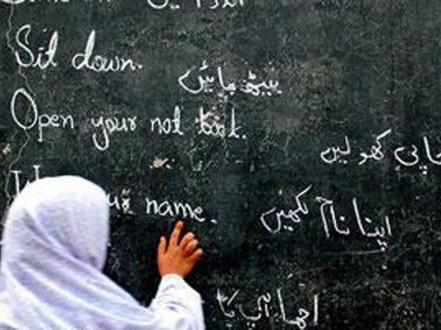 Sit down.
بیٹھ جائیں
Open your not book.
کھولیں
name.
اپنا نام لکھیں
اچھا آپ کا